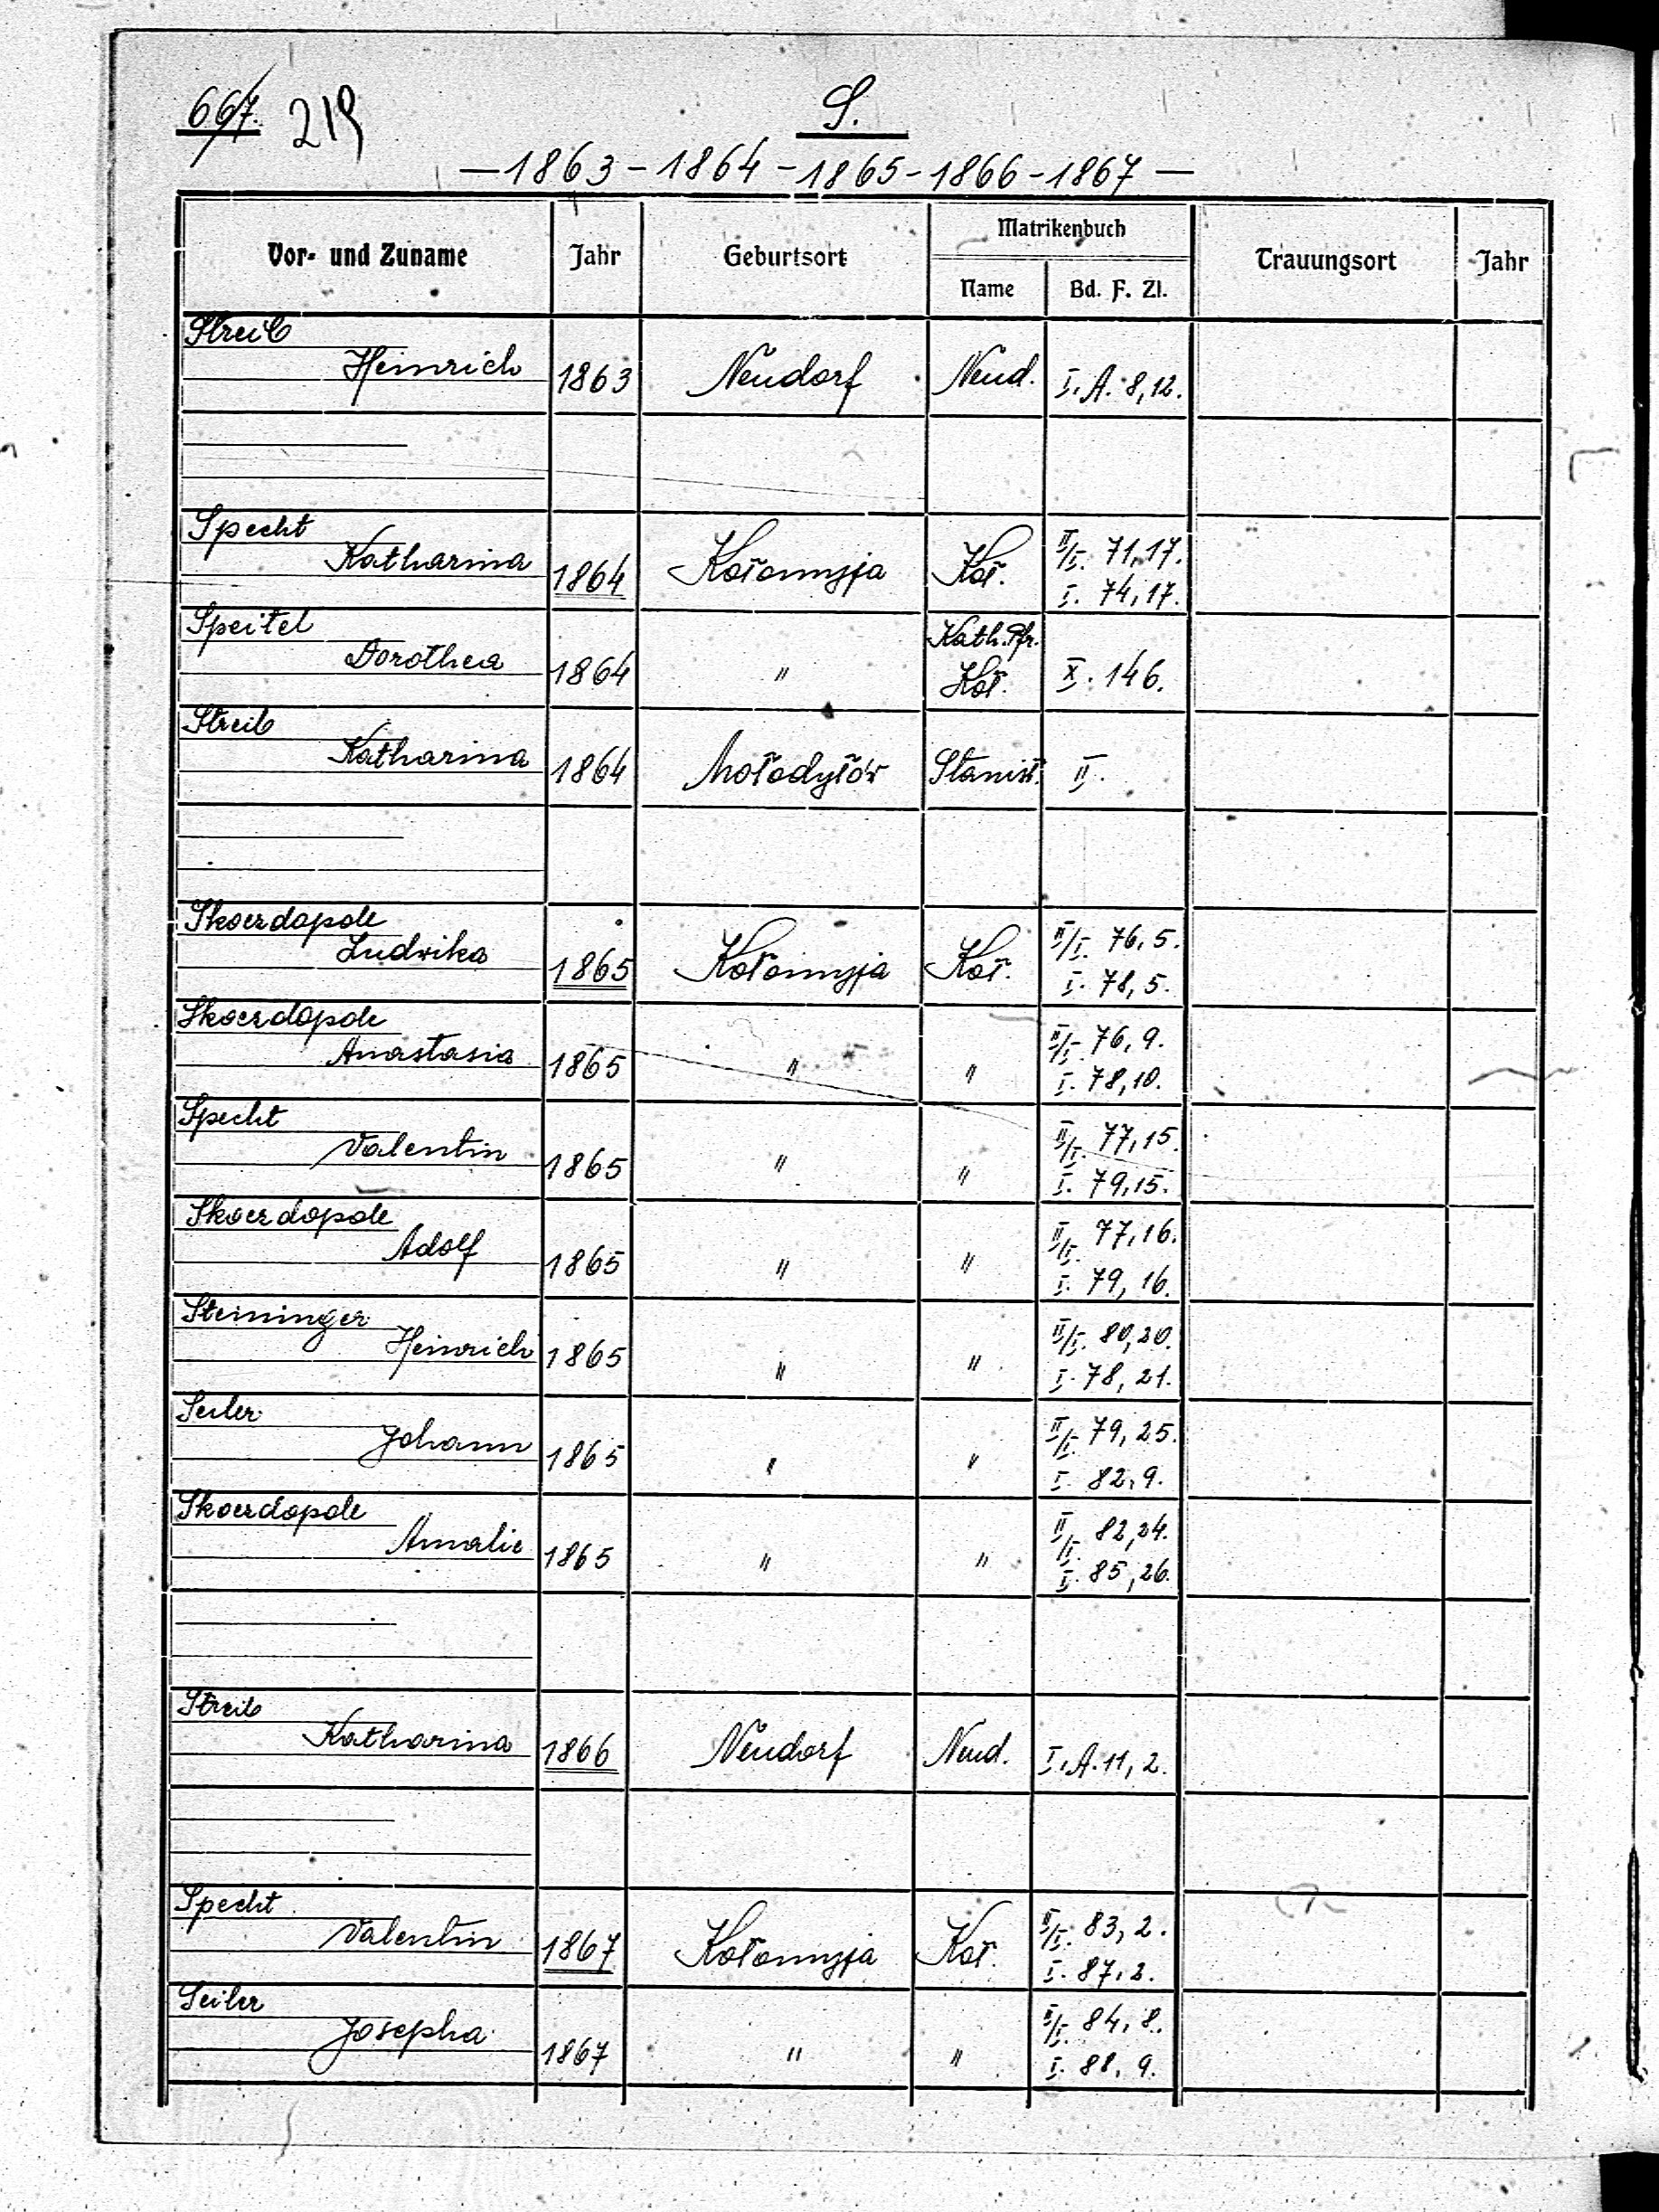 667. 219
S.
—1863-1864-1865-1866-1867—
Vor- und Zuname Jahr Geburtsort Matrikenbuch Trauungsort Jahr
Name Bd. F. Zl.
Streib
Heinrich 1863 Neudorf Neud. I. A. 8,12.
Specht II/I. 71,17.
Katharina 1864 Kołomyja Koł.
I. 74,17.
Speitel Kath. Pfr.
Dorothea 1864 " Koł. X. 146.
Streib
Katharina 1864 Mołodyłów Stanisł. II.
Skoerdopole II/I. 76,5.
Ludwika 1865 Kołomyja Koł.
I. 78,5.
Skoerdopole II/I. 76,9.
Anastasia 1865 " "
I. 78,10.
Specht II/I. 77,15.
Valentin 1865 " "
I. 79,15.
Skoerdopole II/I. 77,16.
Adolf 1865 " "
I. 79,16.
Steininger II/I. 80,20.
Heinrich 1865 " "
I. 78,21.
Seiler II/I. 79,25.
Johann 1865 " "
I. 82,9.
Skoerdopole II/I. 82,24.
Amalie 1865 " "
I. 85,26.
Streib
Katharina 1866 Neudorf Neud. I. A. 11,2.
Specht II/I. 83,2.
Valentin 1867 Kołomyja Koł.
I. 87,2.
Seiler II/I. 84,8.
Josepha 1867 " "
I. 88,9.